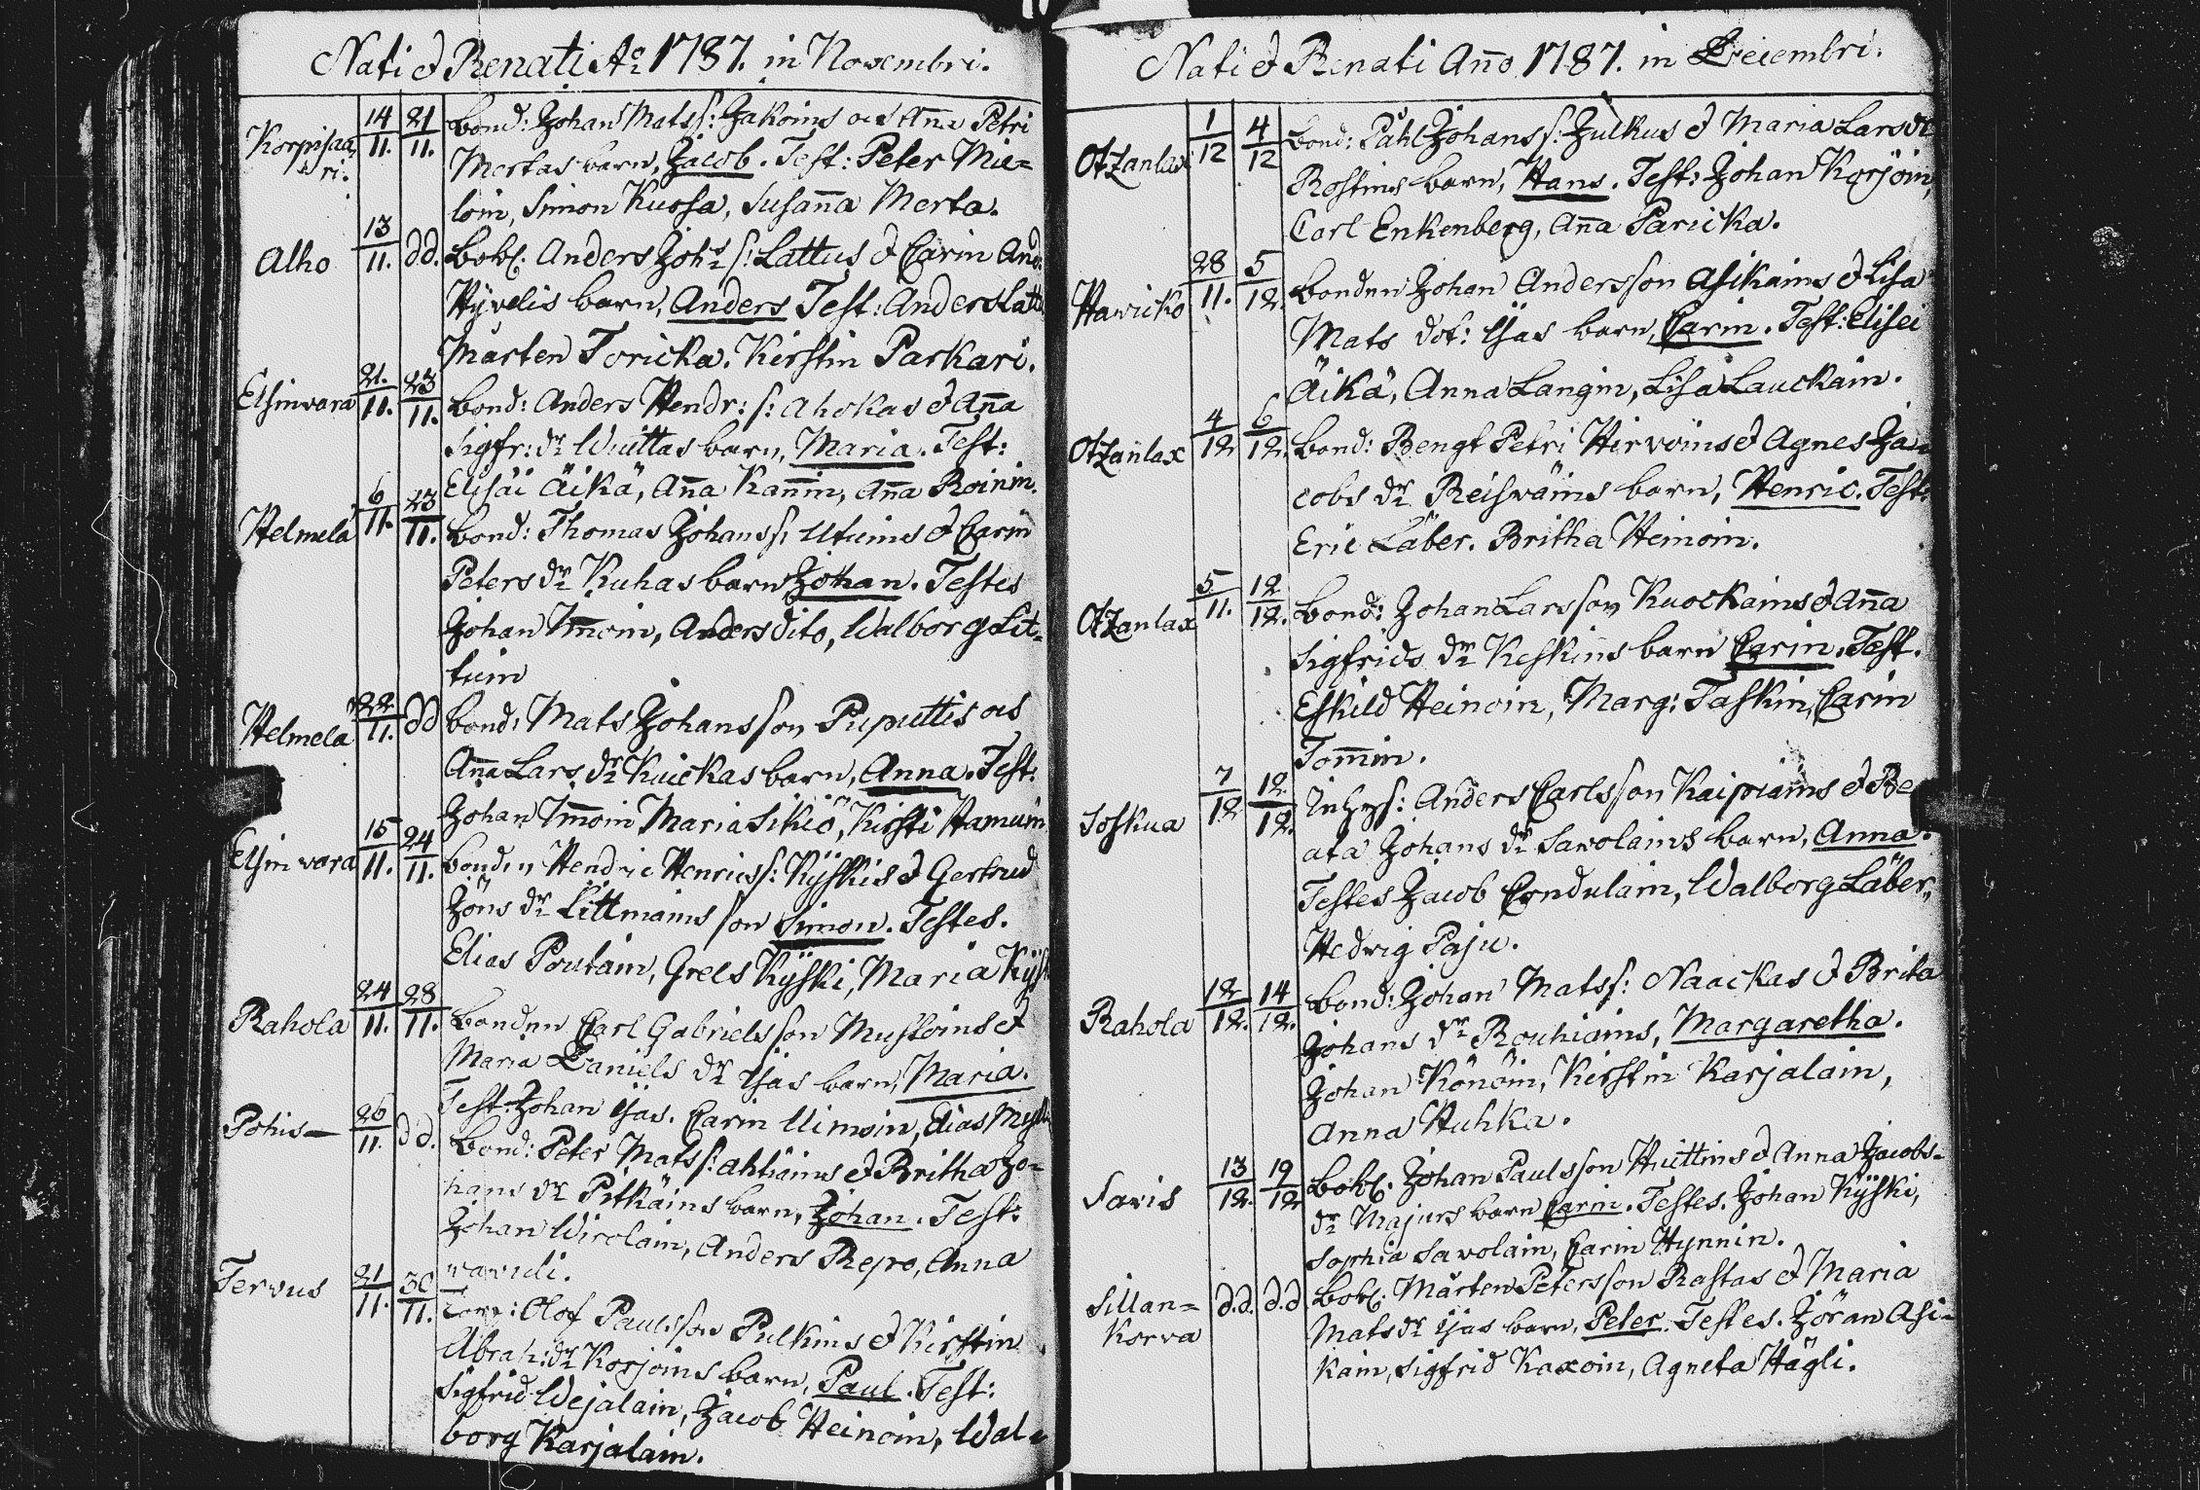 Nati & Renati Ao 1787. in Novembri.
Korpisaa,
ri.
14/11. 21/11.
bond: Johan Matss: Jakoins ocs Anna Petri
Mertas barn, Jacob. Test: Peter Mie=
loin, Simon Kuosa, Susanna Merta.
Alho 13/11. dd.
bobl. Anders Johs s: Lattus & Carin And:
Hyvelis barn, Anders Test: Anders Latt
Mårten Toricka. Kirstin Parkari.
Elsinvara 21./11. 23/11.
bond: Anders Hendr: s: Ahokas & Anna
Sigfr: dr Wuittas barn, Maria. Test:
Elisäi Äikä, Anna Kannin, Anna Roinin.
Helmelä 6/11. 23/11.
bond: Thomas Johanss: Utuins & Carin
Peters dr Kuhas barn Johan. Testes
Johan Immoin, Anders dito, Walborg Lit=
tuin
Helmelä 22/11. dd
bond: Mats Johansson Puputtis ocs
Anna Lars dr Kuickas barn, Anna. Test:
Johan Immoin Maria Sikiö, Kirsti Hamuin
Elsinvara 15/11. 24/11.
bonden Hendric Henricss: Kÿskis & Gertrud
Jöns dr Littmains son Simon. Testes.
Elias Poutain, Grels Kÿski, Maria Kÿsk
Rahola 24/11. 28/11.
bonden Carl Gabrielsson Mustoins &
Maria Daniels dr Ijäs barn, Maria.
Test: Johan Ijäs. Carin Uimoin, Elias
Pohis— 26/11. dd.
bond: Peter Matss: Ahtiains & Britha Jo=
hans dr Pitkäins barn, Johan. Test:
Johan Wirolain, Anders Repo, Anna
Tervus 21/11. 30/11.
Olof Paulsson Pulkins & Kirstin
Abrah: dr Korjoins barn, Paul. Test:
Sigfrid Wejalain, Jacob Heinoin, Wal=
borg Karjalain.
Nati & Renati Anno 1787. in Decembri.
Otzanlax 1/12 4/12
bond: Påhl Johanss: Julkus & Maria Lars dr
Rostins barn, Hans. Test: Johan Korjoin,
Carl Enkenberg, Anna Paricka.
Hawicko 28/11. 5/12.
bonden Johan Andersson Asikains & Lisa
Mats dot: Ijäs barn, Carin. Test: Elisei
Äikä, Anna Langin, Lisa Lauckain.
Otzanlax 4/12 6/12.
bond: Bengt Petri Hirvoins & Agnes Ja=
cobs dr Reiswäins barn, Henric. Test:
Eric Läber. Britha Heinoin.
Otzanlax 5/11. 12/12.
bond: Johan Larsson Kuockains & Anna
Sigfrids dr Keskins barn Carin. Test.
Eskild Heinoin, Marg: Taskin, Carin
Tommin.
Soskua 7/12 12/12.
Inhys: Anders Carlsson Kaipiains & Be
ata Johans dr Savolains barn, Anna.
Testes Jacob Condulain, Walborg Läber,
Hedvig Paju.
Rahola 12/12. 14/12.
bond: Johan Matss: Naackas & Brita
Johans dr Rouhiains, Margaretha.
Johan Könöin, Kirstin Karjalain,
Anna Huhka.
Saris 13/12. 19/12
bobl. Johan Paulsson Huittins & Anna Jacobs=
dr Majurs barn Carin. Testes. Johan Kÿski,
Sophia Savolain, Carin Hynnin.
Sillan=
Korva
d.d. d.d
bobl. Mårten Petersson Rastas & Maria
Mats dr Ijäs barn, Peter. Testes. Jöran Asi=
kain, Sigfrid Kaxoin, Agneta Hägli.